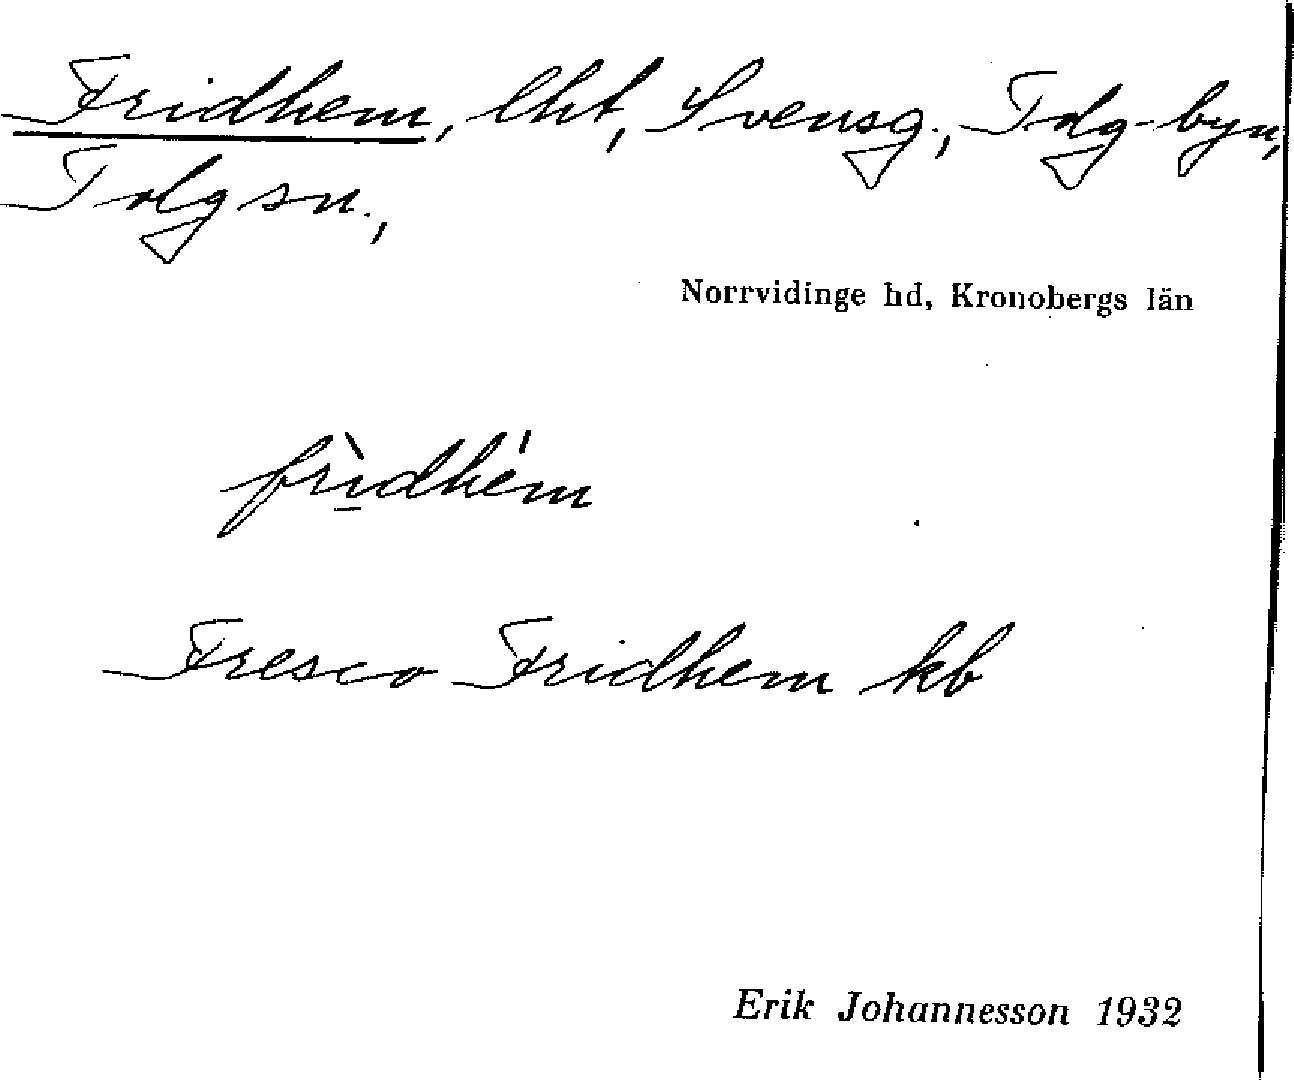 Fridhem, lht, Svensg., Tolg-byn,
Tolg sn.,
Norrvidinge hd, Kronobergs län
frìdhem
Fresco Fridhem kb
Erik Johannesson 1932